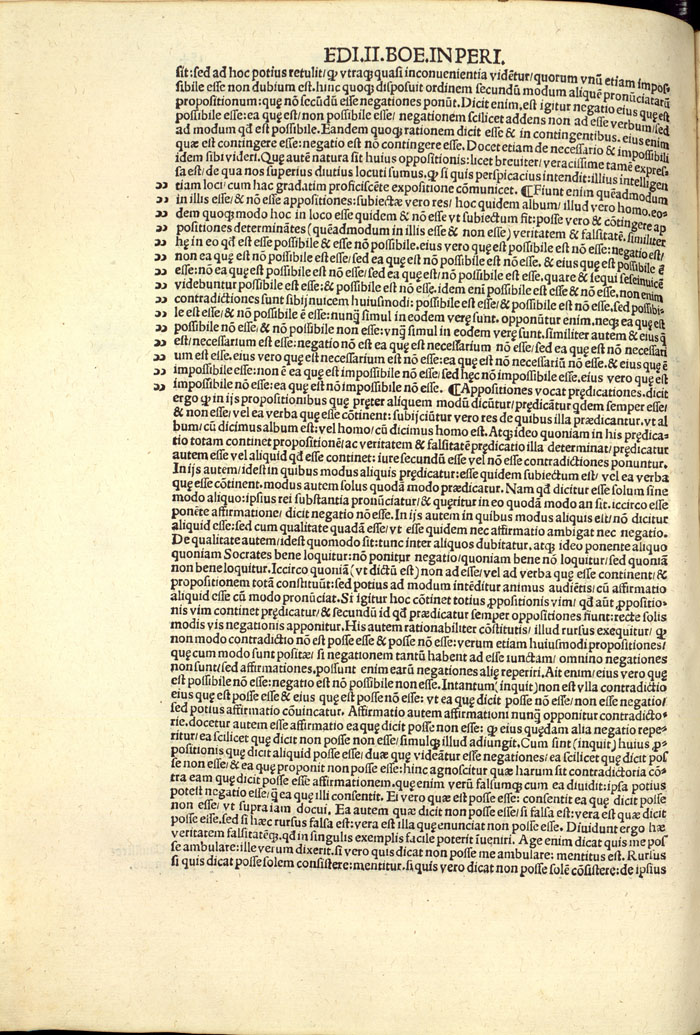 EDI.II.BOE.IN PERI.
sit: sed ad hoc potius retulit/ qꝫ vtraqꝫ quasi inconuenientia vidētur/ quorum vnū etiam impos⸗
sibile esse non dubium est. hinc quoqꝫ disposuit ordinem secundū modum aliquē pronūciatarū
propositionum: quę nō secūdū esse negationes ponūt. Dicit enim, est igitur negatio eius quę est
possibile esse: ea quę est/ non possibile esse/ negationem scilicet addens non ad esse verbum/ sed
ad modum qđ est possibile. Eandem quoqꝫ rationem dicit esse & in contingentibus. eius enim
quæ est contingere esse: negatio est nō contingere esse. Docet etiam de necessario & impossibili
idem sibi videri. Quę autē natura sit huius oppositionis: licet breuiter/ veracissime tamē expres⸗
sa est/ de qua nos superius diutius locuti sumus. qꝫ si quis perspicacius intendit: illius intelligen
ↄↄ tiam loci cum hac gradatim proficiscēte expositione cōmunicet. ¶Fiunt enim quēadmodum
ↄↄ in illis esse/ & nō esse appositiones: subiectæ vero res/ hoc quidem album/ illud vero homo. eo⸗
ↄↄ dem quoqꝫ modo hoc in loco esse quidem & nō esse vt subiectum fit: posse vero & cōtingere ap
ↄↄ positiones determinātes (quēadmodum in illis esse & non esse) veritatem & falsitatē. similiter
ↄↄ hę in eo qđ est esse possibile & esse nō possibile. eius vero quę est possibile est nō esse: negatio est/
ↄↄ non ea quę est nō possibile est esse/ sed ea quę est nō possibile est nō esse. & eius quę est possibile ē
ↄↄ esse: nō ea quę est possibile est nō esse/ sed ea quę est/ nō possibile est esse. quare & sequi seseinuicē
ↄↄ videbuntur possibile est esse: & possibile est nō esse. idem enī possibile est esse & nō esse, non enim
ↄↄ contradictiones sunt sibijnuicem huiusmodi: possibile est esse/ & possibile est nō esse. sed possibi⸗
ↄↄ le est esse/ & nō possibile ē esse: nunqꝫ simul in eodem verę sunt. opponūtur enim. neqꝫ ea quę est
ↄↄ possibile nō esse/ & nō possibile non esse: vnqꝫ simul in eodem verę sunt. similiter autem & eius qꝫ
ↄↄ est/ necessarium est esse: negatio nō est ea quę est necessarium nō esse/ sed ea quę est nō necessari
ↄↄ um est esse. eius vero quę est necessarium est nō esse: ea quę est nō necessariū nō esse. & eius quę ē
ↄↄ impossibile esse: non ē ea quę est impossibile nō esse/ sed hęc nō impossibile esse. eius vero quę est
ↄↄ impossibile nō esse: ea quę est nō impossibile nō esse. ¶Appositiones vocat prędicationes. dicit
ergo qꝫ in ijs propositionibus quę pręter aliquem modū dicūtur/ prędicātur qdem semper esse/
& non esse/ vel ea verba quę esse cōtinent: subijciūtur vero res de quibus illa prædicantur. vt al
bum/ cū dicimus album est: vel homo/ cū dicimus homo est. Atqꝫ ideo quoniam in his prędica⸗
tio totam continet propositionē/ ac veritatem & falsitatē prędicatio illa determinat/ prędicatur
autem esse vel aliquid qđ esse continet: iure secundū esse vel nō esse contradictiones ponuntur.
In ijs autem/ idest in quibus modus aliquis prędicatur: esse quidem subiectum est/ vel ea verba
quę esse cōtinent. modus autem solus quodā modo prædicatur. Nam qđ dicitur esse solum sine
modo aliquo: ipsius rei substantia pronūciatur/ & quęritur in eo quodā modo an sit. iccirco esse
ponēte affirmatione/ dicit negatio nō esse. In ijs autem in quibus modus aliquis est/ nō dicitur
aliquid esse: sed cum qualitate quadā esse/ vt esse quidem nec affirmatio ambigat nec negatio.
De qualitate autem/ idest quomodo sit: tunc inter aliquos dubitatur. atqꝫ ideo ponente aliquo
quoniam Socrates bene loquitur: nō ponitur negatio/ quoniam bene nō loquitur/ sed quoniā
non bene loquitur. Iccirco quoniā (vt dictū est) non ad esse/ vel ad verba quę esse continent/ &
propositionem totā constituūt: sed potius ad modum intēditur animus audiētis/ cū affirmatio
aliquid esse cū modo pronūciat. Si igitur hoc cōtinet totius ꝓpositionis vim/ qđ aūt ꝓpositio⸗
nis vim continet prędicatur/ & secundū id qđ prædicatur semper oppositiones fiunt: recte solis
modis vis negationis apponitur. His autem rationabiliter cōstitutis/ illud rursus exequitur/ qꝫ
non modo contradictio nō est posse esse & posse nō esse: verum etiam huiusmodi propositiones/
quę cum modo sunt positæ/ si negationem tantū habent ad esse iunctam/ omnino negationes
non sunt/ sed affirmationes, possunt enim earū negationes alię reperiri. Ait enim/ eius vero quę
est possibile nō esse: negatio est nō possibile non esse. Intantum (inquit) non est vlla contradictio
eius quę est posse esse & eius quę est posse nō esse: vt ea quę dicit posse nō esse/ non esse negatio/
sed potius affirmatio cōuincatur. Affirmatio autem affirmationi nunqꝫ opponitur contradicto⸗
rie. docetur autem esse affirmatio ea quę dicit posse non esse: qꝫ eius quędam alia negatio repe⸗
ritur/ ea scilicet quę dicit non posse non esse/ simulqꝫ illud adiungit. Cum sint (inquit) huius ꝓ⸗
positionis quę dicit aliquid posse esse/ duæ quę videātur esse negationes/ ea scilicet quę dicit pos
se non esse/ & ea quę proponit non posse esse: hinc agnoscitur quæ harum sit contradictoria cō⸗
tra eam quę dicit posse esse affirmationem. quę enim verū falsumqꝫ cum ea diuidit: ipsa potius
potest negatio esse/ qꝫ ea quę illi consentit. Ei vero quæ est posse esse: consentit ea quę dicit posse
non esse/ vt supra iam docui. Ea autem quæ dicit non posse esse/ si falsa est: vera est quæ dicit
posse esse. sed si hæc rursus falsa est: vera est illa quę enunciat non posse esse. Diuidunt ergo hæ
veritatem falsitatēqꝫ. qđ in singulis exemplis facile poterit īueniri. Age enim dicat quis me pos
se ambulare: ille verum dixerit. si vero quis dicat non posse me ambulare: mentitus est. Rursus
si quis dicat posse solem consistere: mentitur. si quis vero dicat non posse solē cōsistere: de ipsius